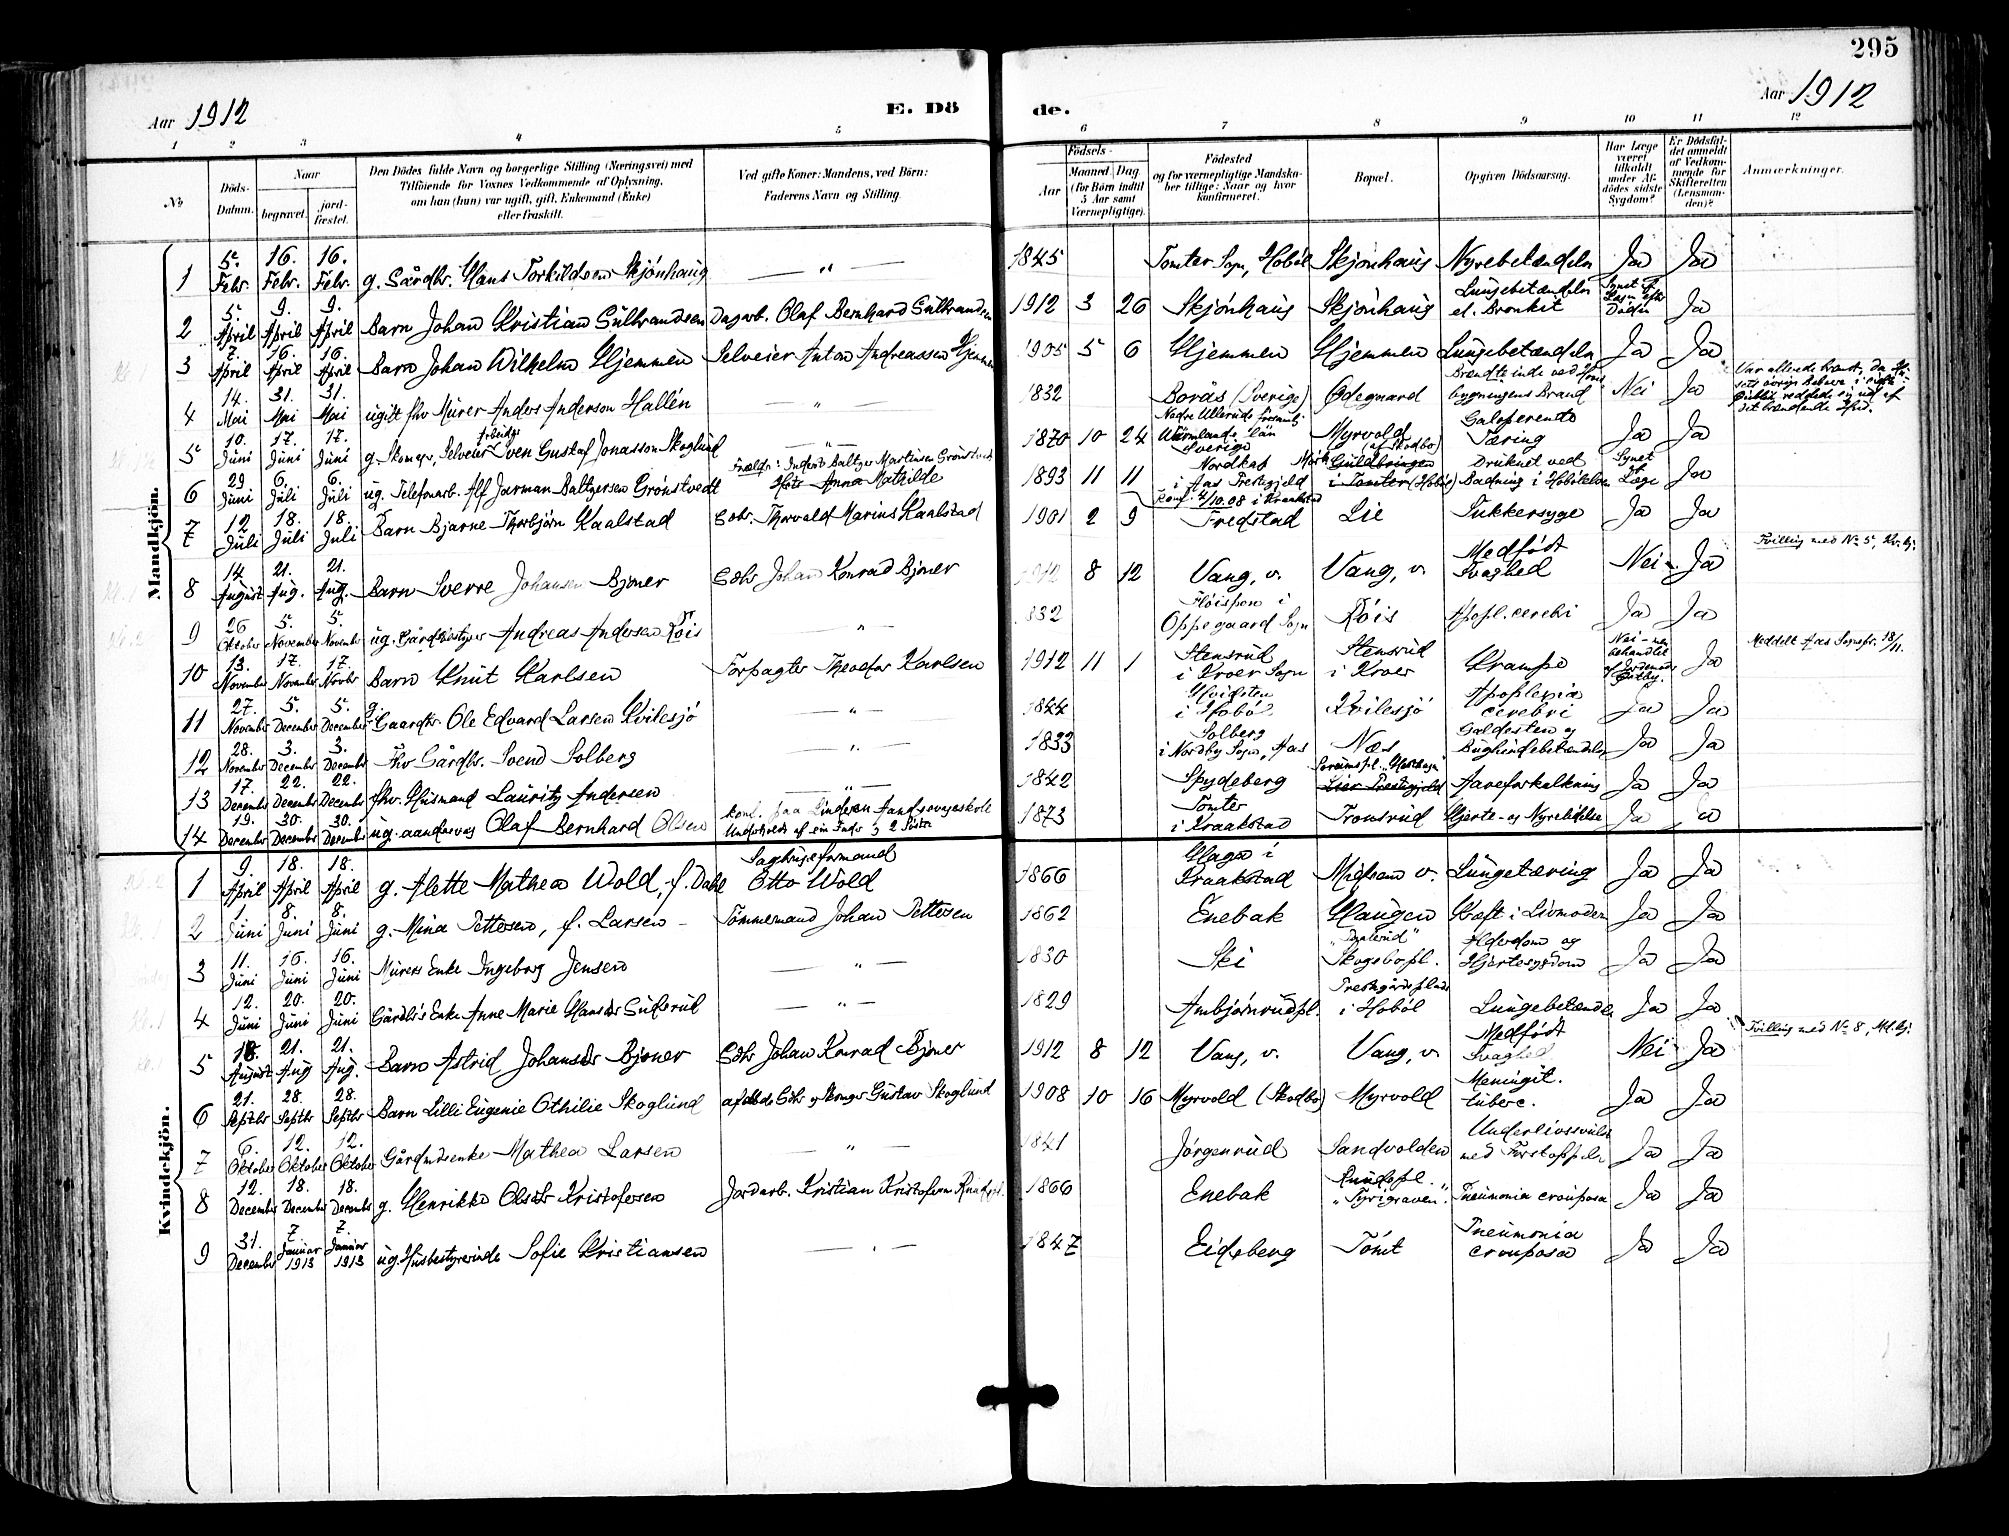 295
Aar 1912
E. Dö
de.
Aar 1912
1 2 3 4 5 6 7 8 9 10 11 12
No
Döds-Datum.
Naar
begravet.
jord-fæstet.
Den Dödes fulde Navn og borgerlige Stilling (Næringsvei) med
Tilföiende for Voxnes Vedkommende af Oplysning,
om han (hun) var ugift, gift, Enkemand (Enke)
eller fraskilt.
Ved gifte Koner: Mandens, ved Börn:
Faderens Navn og Stilling.
Födsels-
Aar
Maaned Dag
(for Börn indtil
5 Aar samt
Værnepligtige).
Födested
og for værnepligtige Mandska-
ber tillige: Naar og hvor
konfirmeret.
Bopæl.
Opgiven Dödsaarsag.
Har Læge
været
tilkaldt
under Af-
dödes sidste
Sygdom?
Er Dödsfal-
det anmeldt
af Vedkom-
mende for
Skifteretten
(Lensman-
den)?
Anmærkninger.
Mandkjön.
1 5. Febr. 16. Febr. 16. Febr. g. Gårdbr. Hans Torkildsen Skjönhaug — " — 1845 Tomter Sogn, Hoböl Skjönhaug Nyrebetændelse Ja Ja
2 5. April 9. April 9. April Barn Johan Kristian Gulbrandsen Dagarb. Olaf Bernhard Gulbrandsen 1912 3 26 Skjönhaug Skjönhaug Lungebetændelse el. Bronkit Synet af Læge efter Döden Ja
3 7. April 16. April 16. April Barn Johan Wilhelm Hjemmen Selveier Anton Andreassen Hjemmen 1905 5 6 Hjemmen Hjemmen Lungebetændelse Ja Ja
4 14. Mai 31. Mai 31. Mai ugift fhv Murer Anders Anderson Hallén — " — 1832 Borås (Sverige) Ödegaard Brændte inde ved Hoved bygningens Brand Nei Ja Var allerede brændt, da Husets övrige Beboere i sidste Öieblik reddede sig ud af det brændende Hus.
5 10. Juni 17. Juni 17. Juni g. Skomager, Selveier arbeider Sven Gustaf Jonasson Skoglund — " — 1870 10 24 Nedre Ullerud Församl. Wärmlands län Sverige Myrvold (af Skodbo) Galoperende Tæring Ja Ja
6 29 Juni 6. Juli 6. Juli ug. Telefonarb. Alf Jarman Baltzersen Grönstvedt Forældr: Inderst Baltzer Martinsen Grönstvedt Hstr Anna Mathilde 1893 11 11 Nordkab i Aas Prestegjeld Konf. 4/10.08 i Kraakstad Mörk Guldbringen i Tomter (Hoböl) Druknet ved Badning i Hobölelven Synet Læge Ja
7 12 Juli 18. Juli 18. Juli Barn Bjarne Thorbjörn Kaalstad Gbr. Thorvald Marius Kaalstad 1901 2 9 Fredstad Lie Sukkersyge Ja Ja
8 14 August 21. Aug. 21. Aug. Barn Sverre Johansen Bjoner Gbr Johan Konrad Bjoner 1912 8 12 Vang, v. Vang, v. Medfödt Svaghed Nei Ja Tvilling med No 5, Kv.kj.
9 26 Oktober 5. November 5. November ug. Gårdbestyrer Andreas Andersen Röis — " — 832 Flöispon i Oppegaard Sogn Röis Apopl. cerebri Ja Ja
10 13. November 17. November 17. Novbr Barn Knut Karlsen Forpagter Theodor Karlsen 1912 11 1 Stensrud i Kroer Sogn Stensrud i Kroer Krampe Nei - men behandlet af Jordmoder Ja Meddelt Aas Sognepr. 18/11.
11 27. November 5. December 5. December g. Gaardbr. Ole Edvard Larsen Kvilesjö — " — 1844 Hvidsten i Hoböl Kvilesjö Apoplexia cerebri Ja Ja
12 28. November 3. December 3. December Fhv Gårdbr. Svend Solberg — " — 1833 Solberg i Nordby Sogn, Aas Næs Galdesten og Bughindebetændelse Ja Ja
13 17. December 22. December 22. December fhv. Husmand Lauritz Andersen — " — 1842 Spydeberg Lier Prestegjeld Aareforkalkning Ja Ja
14 19. December 30. December 30. December ug. aandssvag Olaf Bernhard Olsen konf. paa Lindøen Aandssvageskole 1873 Tomter i Kraakstad Tronsrud Hjerte- og Nyrelidelse Ja Ja
Kvindekjön.
1 9. April 18. April 18. April g. Alette Mathea Wold, f. Dahl Sagbrugsformand Otto Wold 1866 Haga i Kraakstad Midsem v. Lungetæring Ja Ja
2 1 Juni 8. Juni 8. Juni g. Mina Pettersen, f. Larsen Tömmermand Johan Pettersen 1862 Enebak Haugen Kræft i Livmoderen Ja Ja
3 11. Juni 16. Juni 16. Juni Murers Enke Ingeborg Jensen — " — 1830 Ski Skogsbopl. Alderdom og Hjertesygdom Ja Ja
4 12. Juni 20. Juni 20. Juni Gårdbr's Enke Anne Marie Hansdtr Guderud — " — 1829 Ambjörnrudpl. Prestegårdsplads i Hoböl Lungebetændelse Ja Ja
5 18. August 21. Aug 21. Aug. Barn Astrid Johansdtr Bjoner Gbr Johan Konrad Bjoner 1912 8 12 Vang, v. Vang, v. Medfödt Svaghed Nei Ja Tvilling med No 8, M.kj.
6 21. Septbr 28. Septbr 28. Septbr Barn Lilli Eugenie Othilie Skoglund afdöde Gbr og Skomager Gustav Skoglund 1908 10 16 Myrvold (Skodbo) Myrvold Meningit. tuberc. Ja Ja
7 6. Oktober 12. Oktober 12. Oktober Gårdmdsenke Mathea Larsen " — 1841 Jörgenrud Sandvolden Underlivssvulst med Forstoppelse Ja Ja
8 12. December 18. December 18. December g. Henrikke Olsdtr Kristofersen Jordarb. Kristian Kristofersen Rudspl. 1866 Enebak Rudspl. "Tyrigraven". Pneumonia crouposa Ja Ja
9 31. December 7. Januar 1913 7. Januar 1913 ug. Husbestyrerinde Sofie Kristiansen — " — 1847 Eidsberg Tömt Pneumonia crouposa Ja Ja